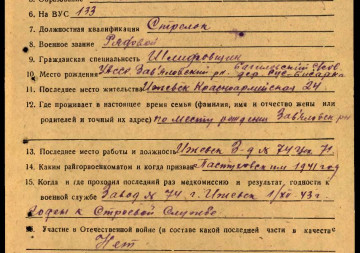 6. На ВУС 133
7. Должностная квалификация Стрелок
8. Военное звание Рядовой
9. Гражданская специальность Шлифовщик
10. Место рождения УАССР Завьяловский р-
11. Последнее место жительства Ижевск Красноармейская 24
12. Где проживает в настоящее время семья (фамилия, имя и отчество жены или
родителей и точный их адрес) по месту рождения Завьяловск р-н
13. Последнее место работы и должность Ижевск З-д № 74
14. Каким райгорвоенкоматом и когда призван Пастуховским 1941 году
15. Когда и где проходил последний раз медкомиссию и результат годности к
военной службе Завод № 74 г. Ижевск 43 г.
Годен к Строевой Службе
Участие в Отечественной войне (в составе какой последней части в качестве
Нет